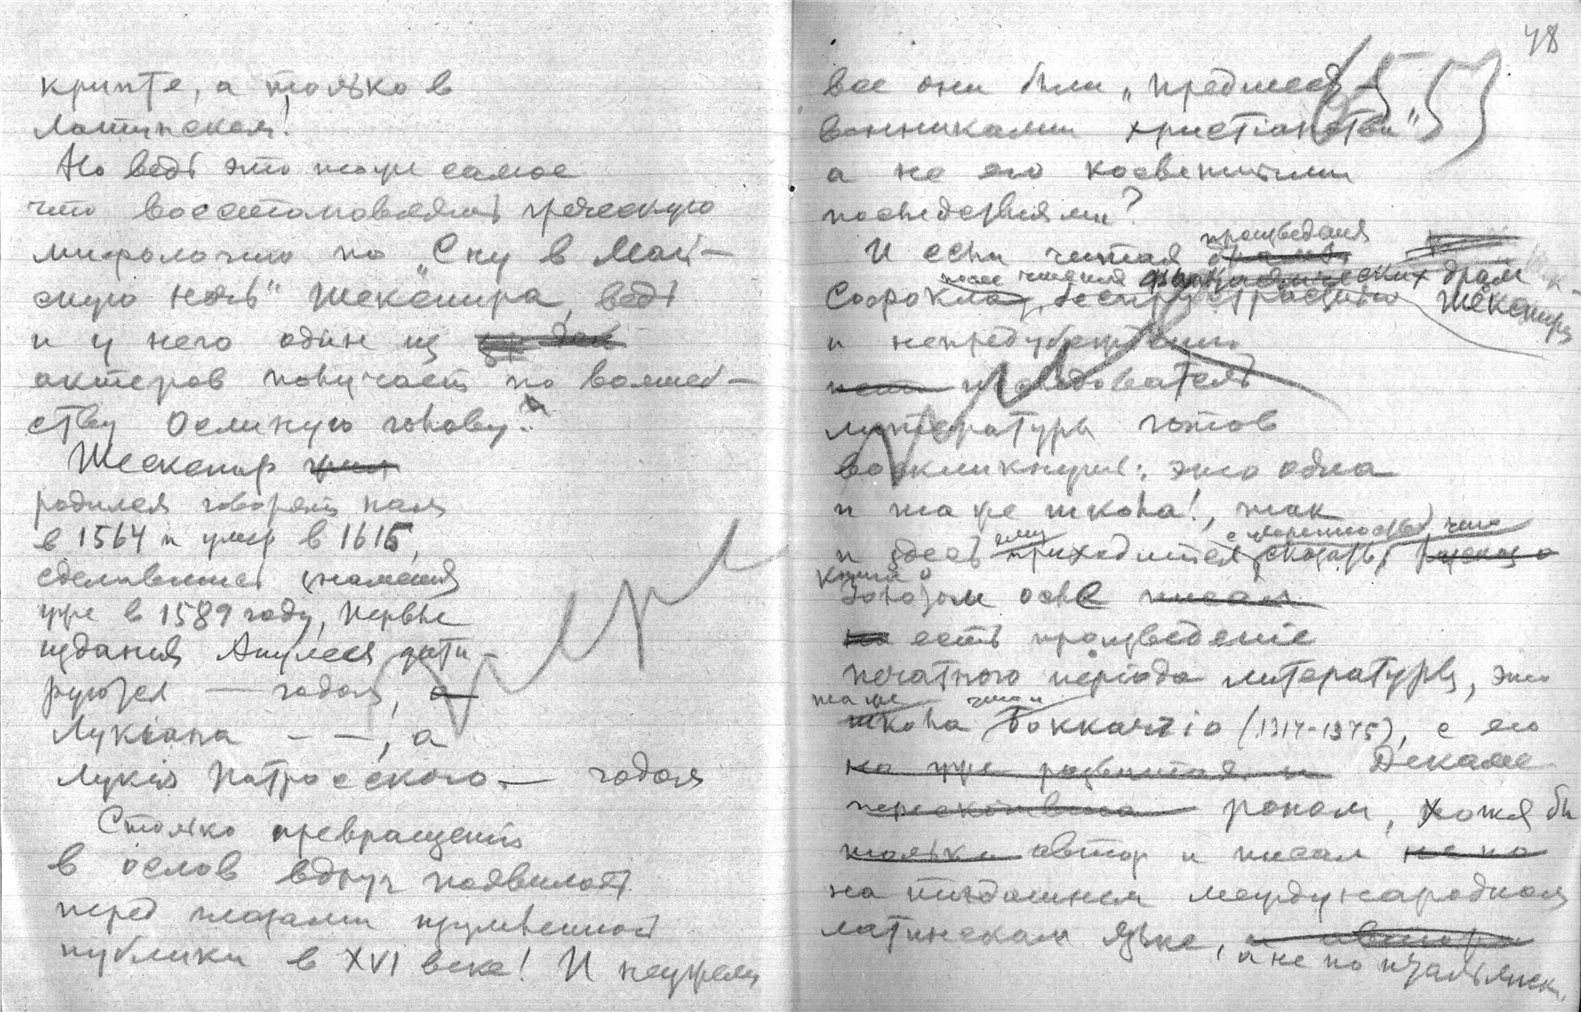 крипте, а только в
латинском!
Но ведь это тоже самое
что восстановлять греческую
мифологию по „Сну в Май-
скую ночь" Шекспира, ведь
и у него один из
актеров получает по волшеб-
ству ослиную голову?
Шекспир
родился говорят нам
в 1564 и умер в 1616,
сделавшись знаменит
уже в 1589 году, первые
издания Апулея дати-
руются — годом, а
Лукiана — —, а
Лукiя Патрасского — годом
Столько превращенiй
в ослов вдруг появилось
перед глазами изумленной
публики в XVI веке! И неужели
48
все они были „предшест-
(55)
венниками христiанства"
а не его косвенными
последствиями?
произведения
И если читая драмы
после чтения фантастических драм
Софокла, беспристрастно
Шекспира
и непредубежденно
исследователь
литературы готов
воскликнуть: это одна
и та же школа!, так
и здесь приходится сказать,
книга о
золотом осле писал
но есть произведенiе
печатного перiода литературы, это
та же
школа Боккаччiо (1314-1375), с его
на уже развитая и Декаме
роном, хотя бы
только автор и писал не на
на тогдашнем международном
латинском языке, и авторы
а не по итальянски.